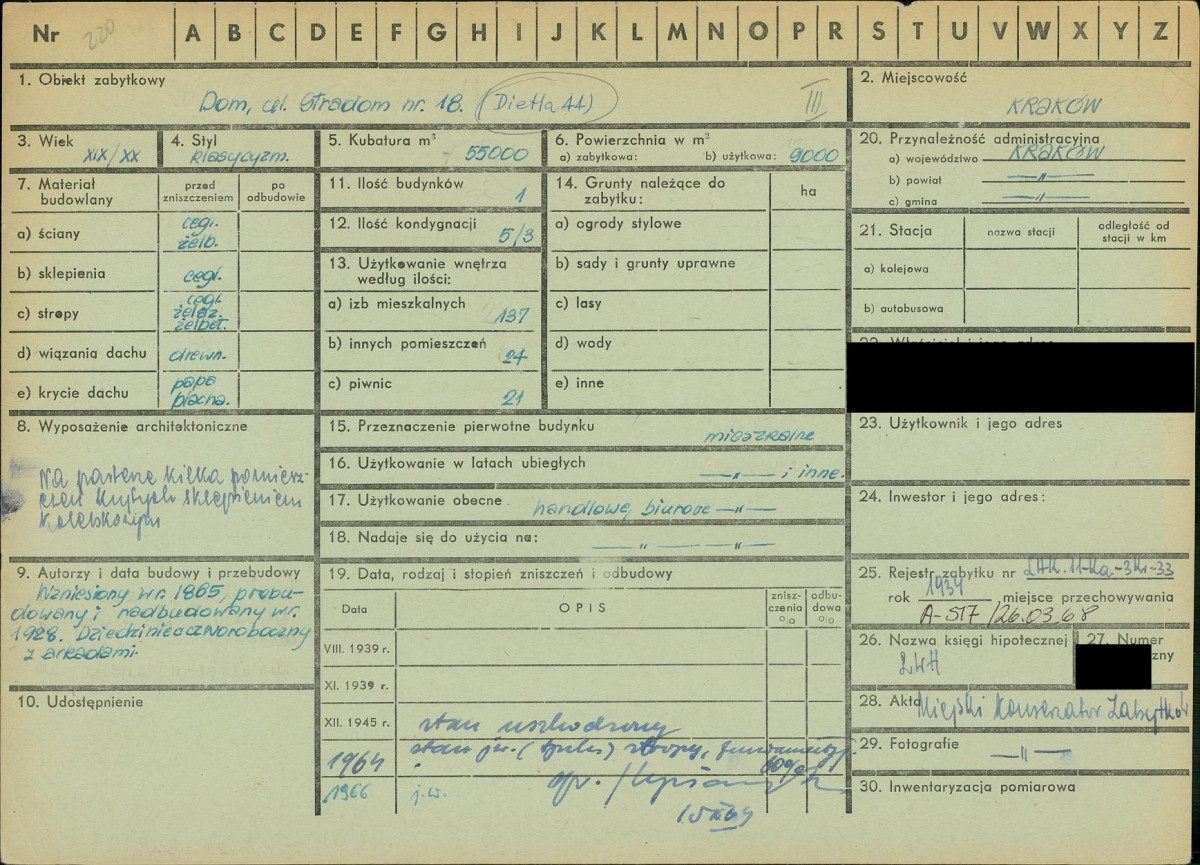 Nr 220 A B C D E F G H I J K L M N O P R S T U V W X Y Z
1. Obiekt zabytkowy
Dom, ul. Stradom nr. 18. (Dietla 44) III
2. Miejscowość
KRAKÓW
3. Wiek
XIX/XX
4. Styl
klasycyzm.
5. Kubatura m³
55000
6. Powierzchnia w m²
a) zabytkowa: b) użytkowa: 9000
20. Przynależność administracyjna
a) województwo KRAKÓW
b) powiat —„—
c) gmina —„—
7. Materiał budowlany
przed zniszczeniem
po odbudowie
a) ściany cegł. żelb.
b) sklepienia cegł.
c) stropy cegł. żelaz. żelbet.
d) wiązania dachu drewn.
e) krycie dachu papa blacha.
11. Ilość budynków
1
12. Ilość kondygnacji
5/3
13. Użytkowanie wnętrza według ilości:
a) izb mieszkalnych
137
b) innych pomieszczeń
24
c) piwnic
21
14. Grunty należące do zabytku:
ha
a) ogrody stylowe
b) sady i grunty uprawne
c) lasy
d) wody
e) inne
21. Stacja
nazwa stacji
odległość od stacji w km
a) kolejowa
b) autobusowa
8. Wyposażenie architektoniczne
Na parterze kilka pomiesz-
czeń krytych sklepieniem
kolebkowym
15. Przeznaczenie pierwotne budynku
mieszkalne
16. Użytkowanie w latach ubiegłych
—„— i inne.
17. Użytkowanie obecne
handlowe, biurowe —„—
18. Nadaje się do użycia na:
—„— —„—
23. Użytkownik i jego adres
24. Inwestor i jego adres:
9. Autorzy i data budowy i przebudowy
Wzniesiony w r. 1865, przebu-
dowany i nadbudowany w r.
1928. Dziedziniec czworoboczny
z arkadami.
10. Udostępnienie
19. Data, rodzaj i stopień zniszczeń i odbudowy
Data
OPIS
zniszczenia %
odbudowa %
VIII. 1939 r.
XI. 1939 r.
XII. 1945 r. stan uszkodzony
1964 stan jw. stropy, fundamenty
60%
1966 j.w.
25. Rejestr zabytku nr
rok 1934, miejsce przechowywania
A-517 /26.03.68
26. Nazwa księgi hipotecznej
LWH
27. Numer
28. Akta Miejski Konserwator Zabytków
29. Fotografie —„—
30. Inwentaryzacja pomiarowa